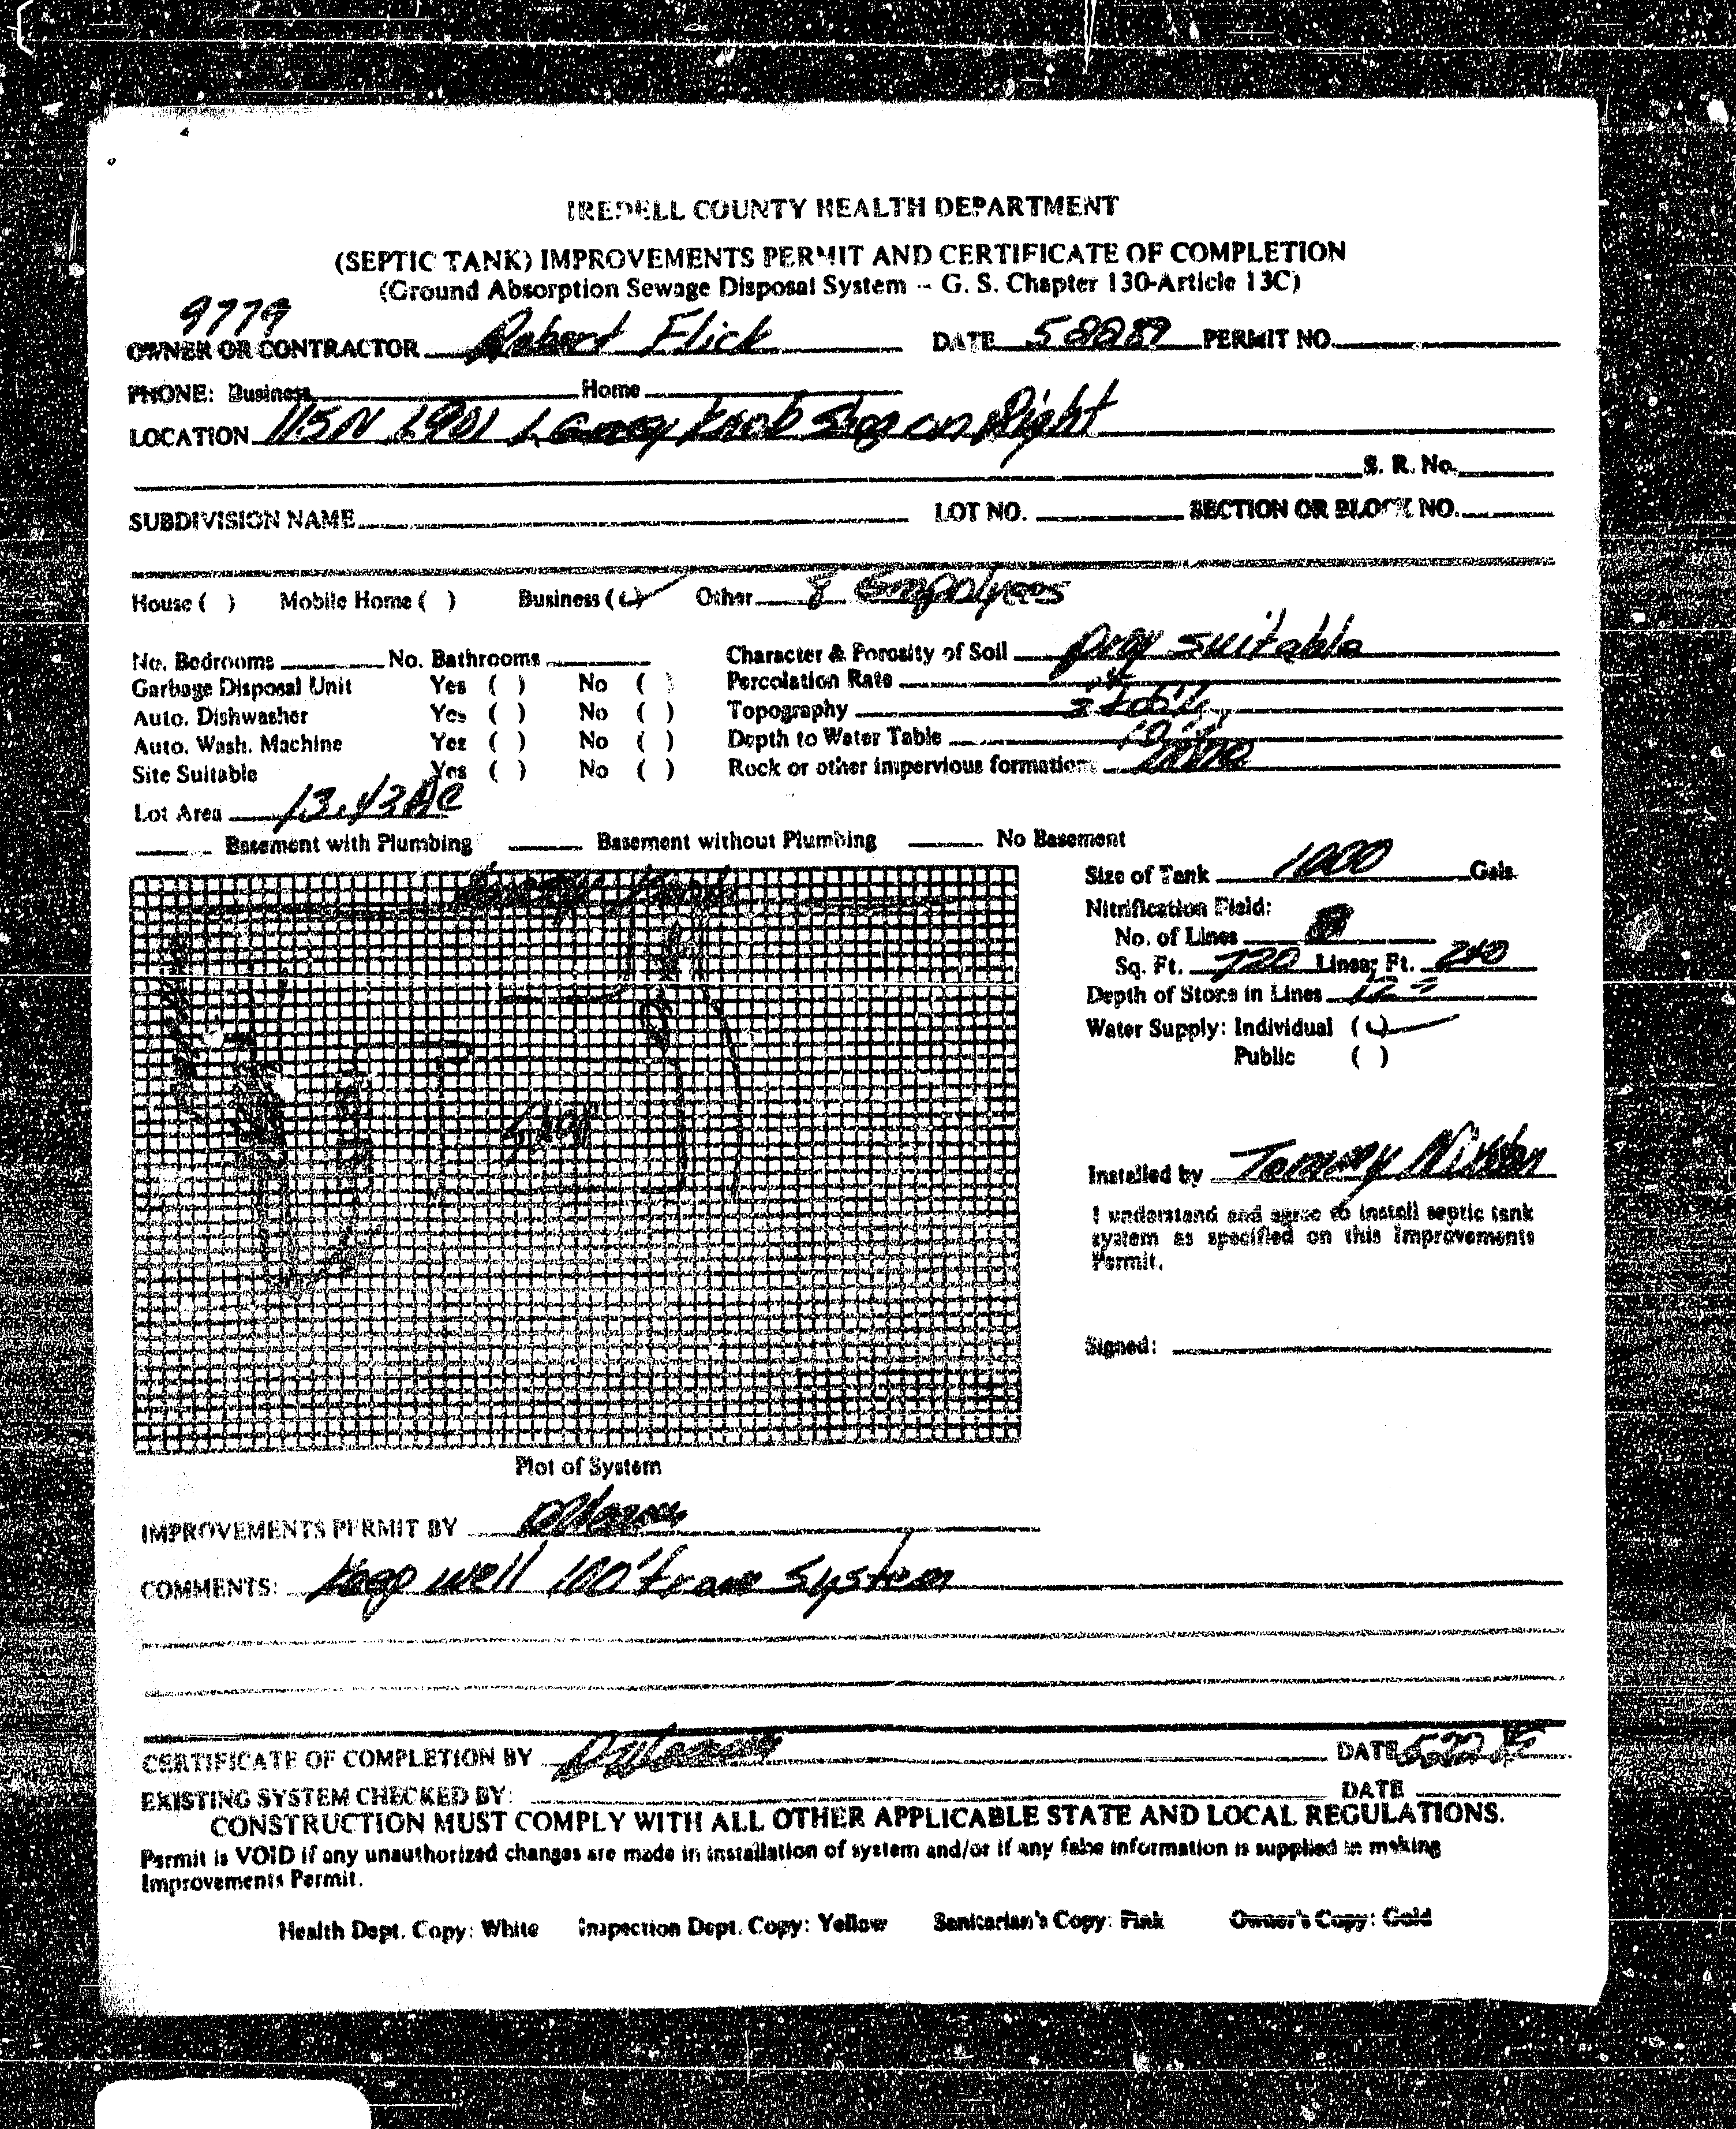 IREDELL COUNTY HEALTH DEPARTMENT
(SEPTIC TANK) IMPROVEMENTS PERMIT AND CERTIFICATE OF COMPLETION
(Ground Absorption Sewage Disposal System -- G. S. Chapter 130-Article 13C)
9779
OWNER OR CONTRACTOR Robert Flick DATE PERMIT NO.
PHONE: Business Home
LOCATION 115N 1901 Knob Shop on Right
S. R. No.
SUBDIVISION NAME LOT NO. SECTION OR BLOCK NO.
House ( ) Mobile Home ( ) Business (✓) Other 8 Empolyees
No. Bedrooms No. Bathrooms Character & Porosity of Soil suitable
Garbage Disposal Unit Yes ( ) No ( ) Percolation Rate
Auto. Dishwasher Yes ( ) No ( ) Topography
Auto. Wash. Machine Yes ( ) No ( ) Depth to Water Table
Site Suitable Yes ( ) No ( ) Rock or other impervious formations
Lot Area 13.43 Ac
Basement with Plumbing Basement without Plumbing No Basement
Size of Tank 1000 Gals.
Nitrification Field:
No. of Lines
Sq. Ft. 720 Linear Ft. 240
Depth of Stone in Lines 12
Water Supply: Individual (✓)
Public ( )
Installed by Tommy
I understand and agree to install septic tank
system as specified on this Improvements
Permit.
Signed:
Plot of System
IMPROVEMENTS PERMIT BY
COMMENTS: Keep well 100' from System
CERTIFICATE OF COMPLETION BY DATE
EXISTING SYSTEM CHECKED BY: DATE
CONSTRUCTION MUST COMPLY WITH ALL OTHER APPLICABLE STATE AND LOCAL REGULATIONS.
Permit is VOID if any unauthorized changes are made in installation of system and/or if any false information is supplied in making
Improvements Permit.
Health Dept. Copy: White Inspection Dept. Copy: Yellow Sanitarian's Copy: Pink Owner's Copy: Gold